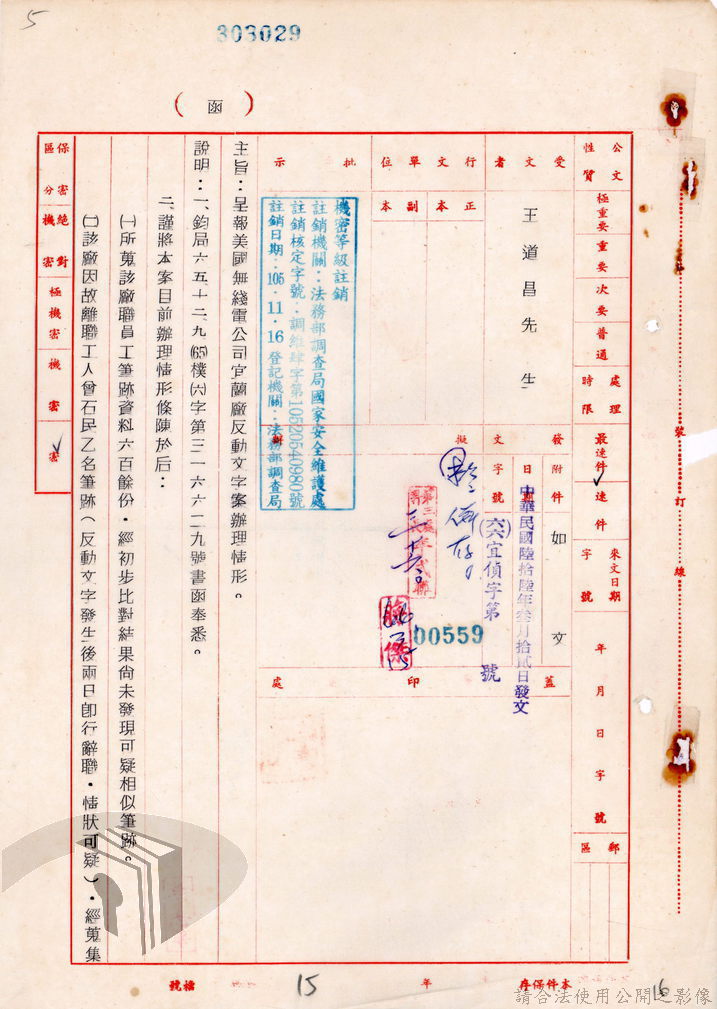 5
303029
(函)
保密區分
絕對機密
極機密
機密
密
公文性質
極重要
重要
次要
普通
處理時限
最速件
速件
來文日期
字號
年月日字號
郵區
受文者
王道昌先生
行文單位
正本
副本
批示
擬辦
發文
附件
如文
日期
中華民國陸拾陸年叁月拾貳日發文
字號
(六六)宜偵字第
00559
號
蓋印處
機密等級註銷
註銷機關：法務部調查局國家安全維護處
註銷核定字號：調維肆字第10520540980號
註銷日期：105.11.16 登記機關：法務部調查局
主旨：呈報美國無綫電公司宜蘭廠反動文字案辦理情形。
說明：一、鈞局六五十二、九(65)樸(六)字第三二一六六二九號書函奉悉。
二、謹將本案目前辦理情形條陳於后：
㈠所蒐該廠職員工筆跡資料六百餘份，經初步比對結果尙未發現可疑相似筆跡。
㈡該廠因故離職工人曾石民乙名筆跡（反動文字發生後兩日卽行辭職，情狀可疑），經蒐集
裝訂線
本件保存
15
年
檔號
16
請合法使用公開之影像